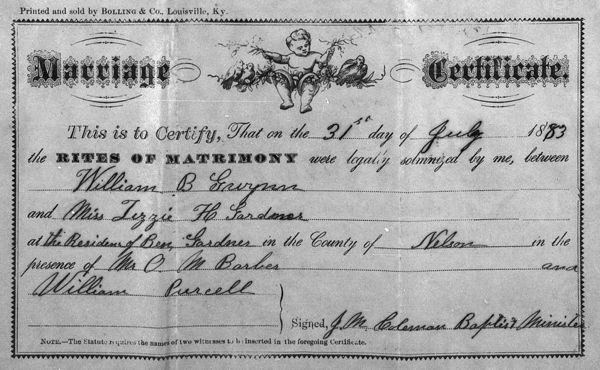 Printed and sold by BOLLING & Co., Louisville, Ky.
Marriage Certificate.
This is to Certify, That on the 31st day of July 1883
the RITES OF MATRIMONY were legally solmnized by me, between
William B Gwynn
and Miss Lizzie H Gardner
at the Residen of Ben Gardner in the County of Nelson in the
presence of Mr O. M Barber and
William Purcell
Signed, J. M. Coleman Baptist Minister
NOTE.—The Statute requires the names of two witnesses to be inserted in the foregoing Certificate.